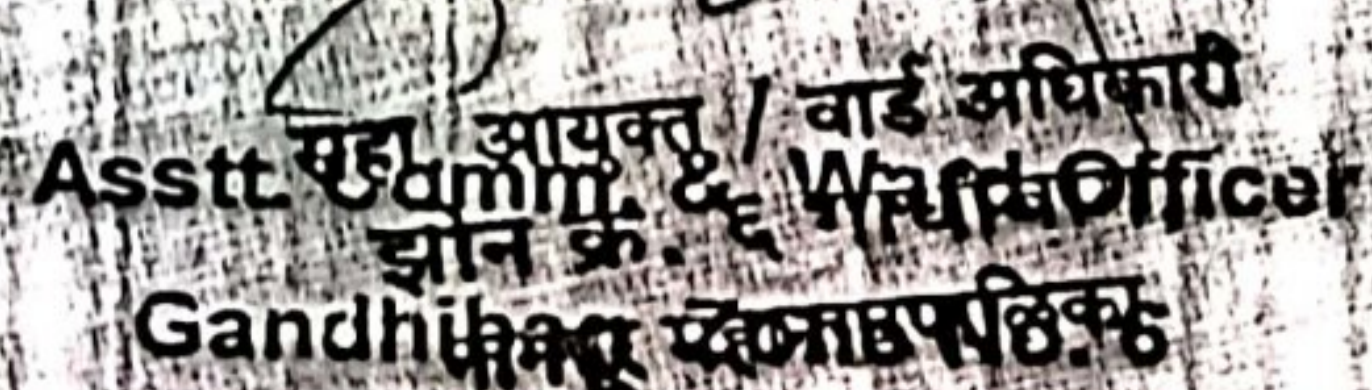 सहा. आयुक्त / वार्ड अधिकारी
Asstt. Comm. & Ward Officer
झोन क्र. ६
Gandhibag